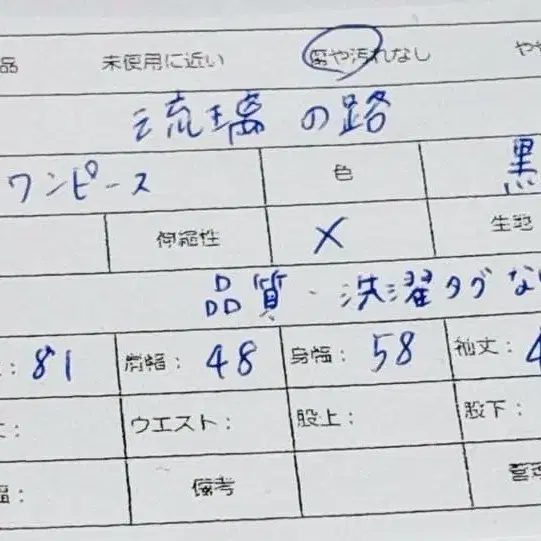 品 未使用に近い 傷や汚れなし やや
流璃の路
ワンピース 色 黒
伸縮性 × 生地
品質・洗濯タグな
: 81 肩幅: 48 身幅: 58 袖丈: 4
: ウエスト: 股上: 股下:
幅: 備考